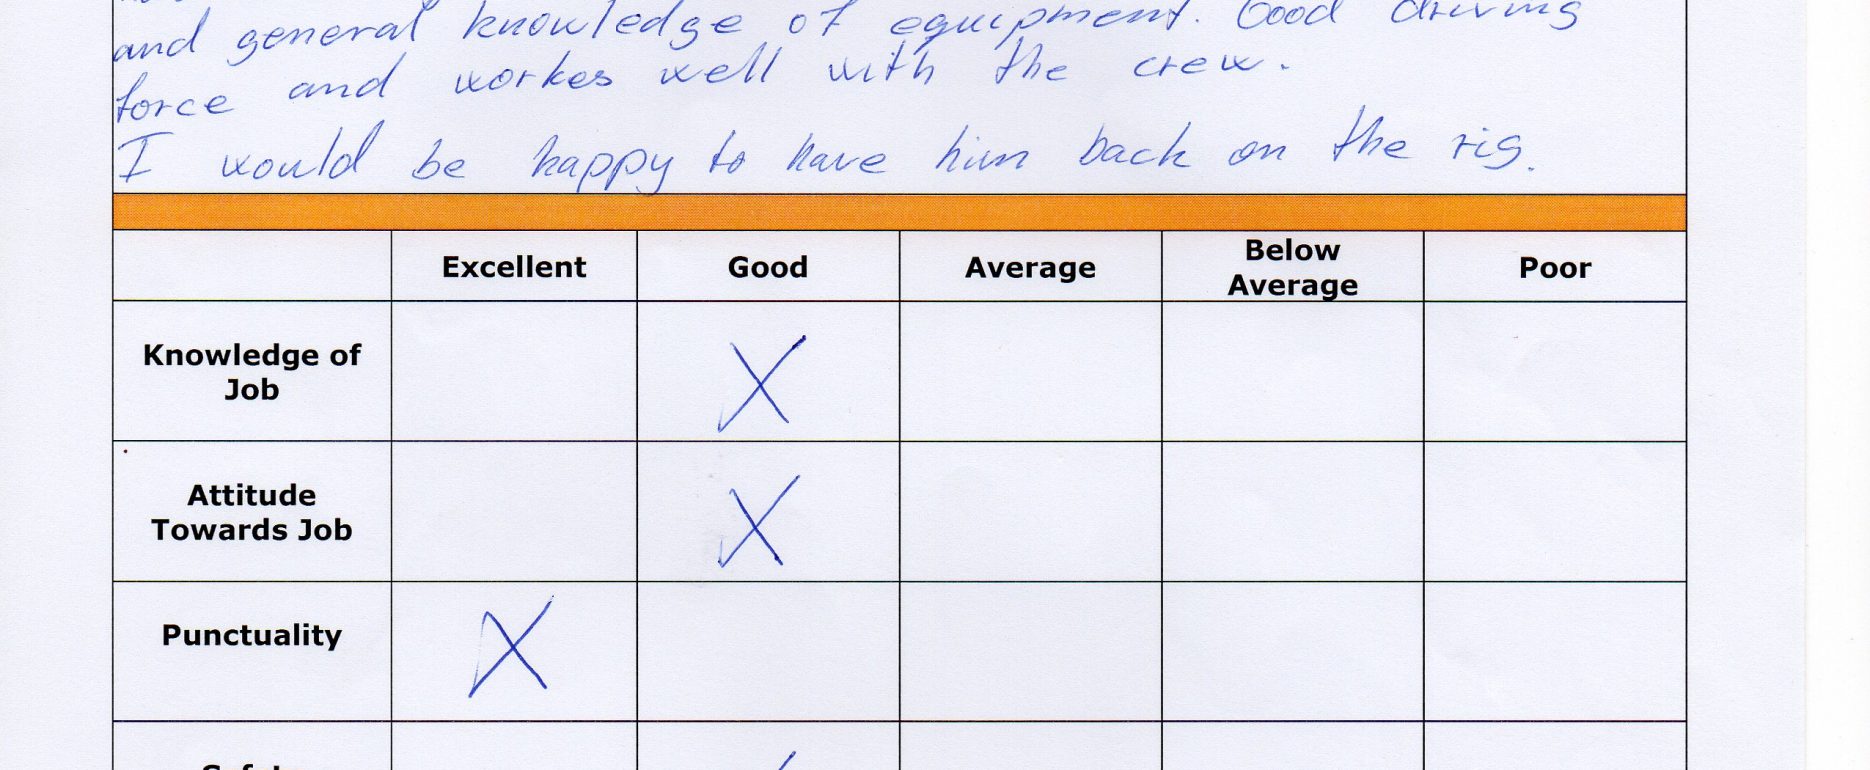 and general knowledge of equipment. Good driving
force and workes well with the crew.
I would be happy to have him back on the rig.
Excellent Good Average Below Average Poor
Knowledge of Job X
Attitude Towards Job X
Punctuality X
Safety